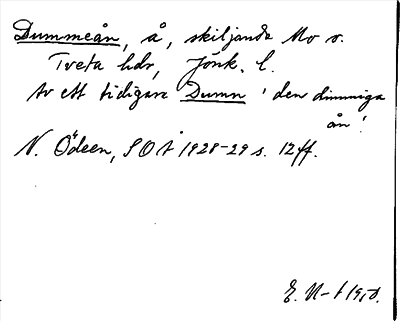 Dummeån, å, skiljande Mo o.
Tveta hdr, Jönk. l.
Av ett tidigare Dumn 'den dimmiga
ån'.
N. Ödeen, SOÅ 1928-29 s. 12ff.
E. N-t